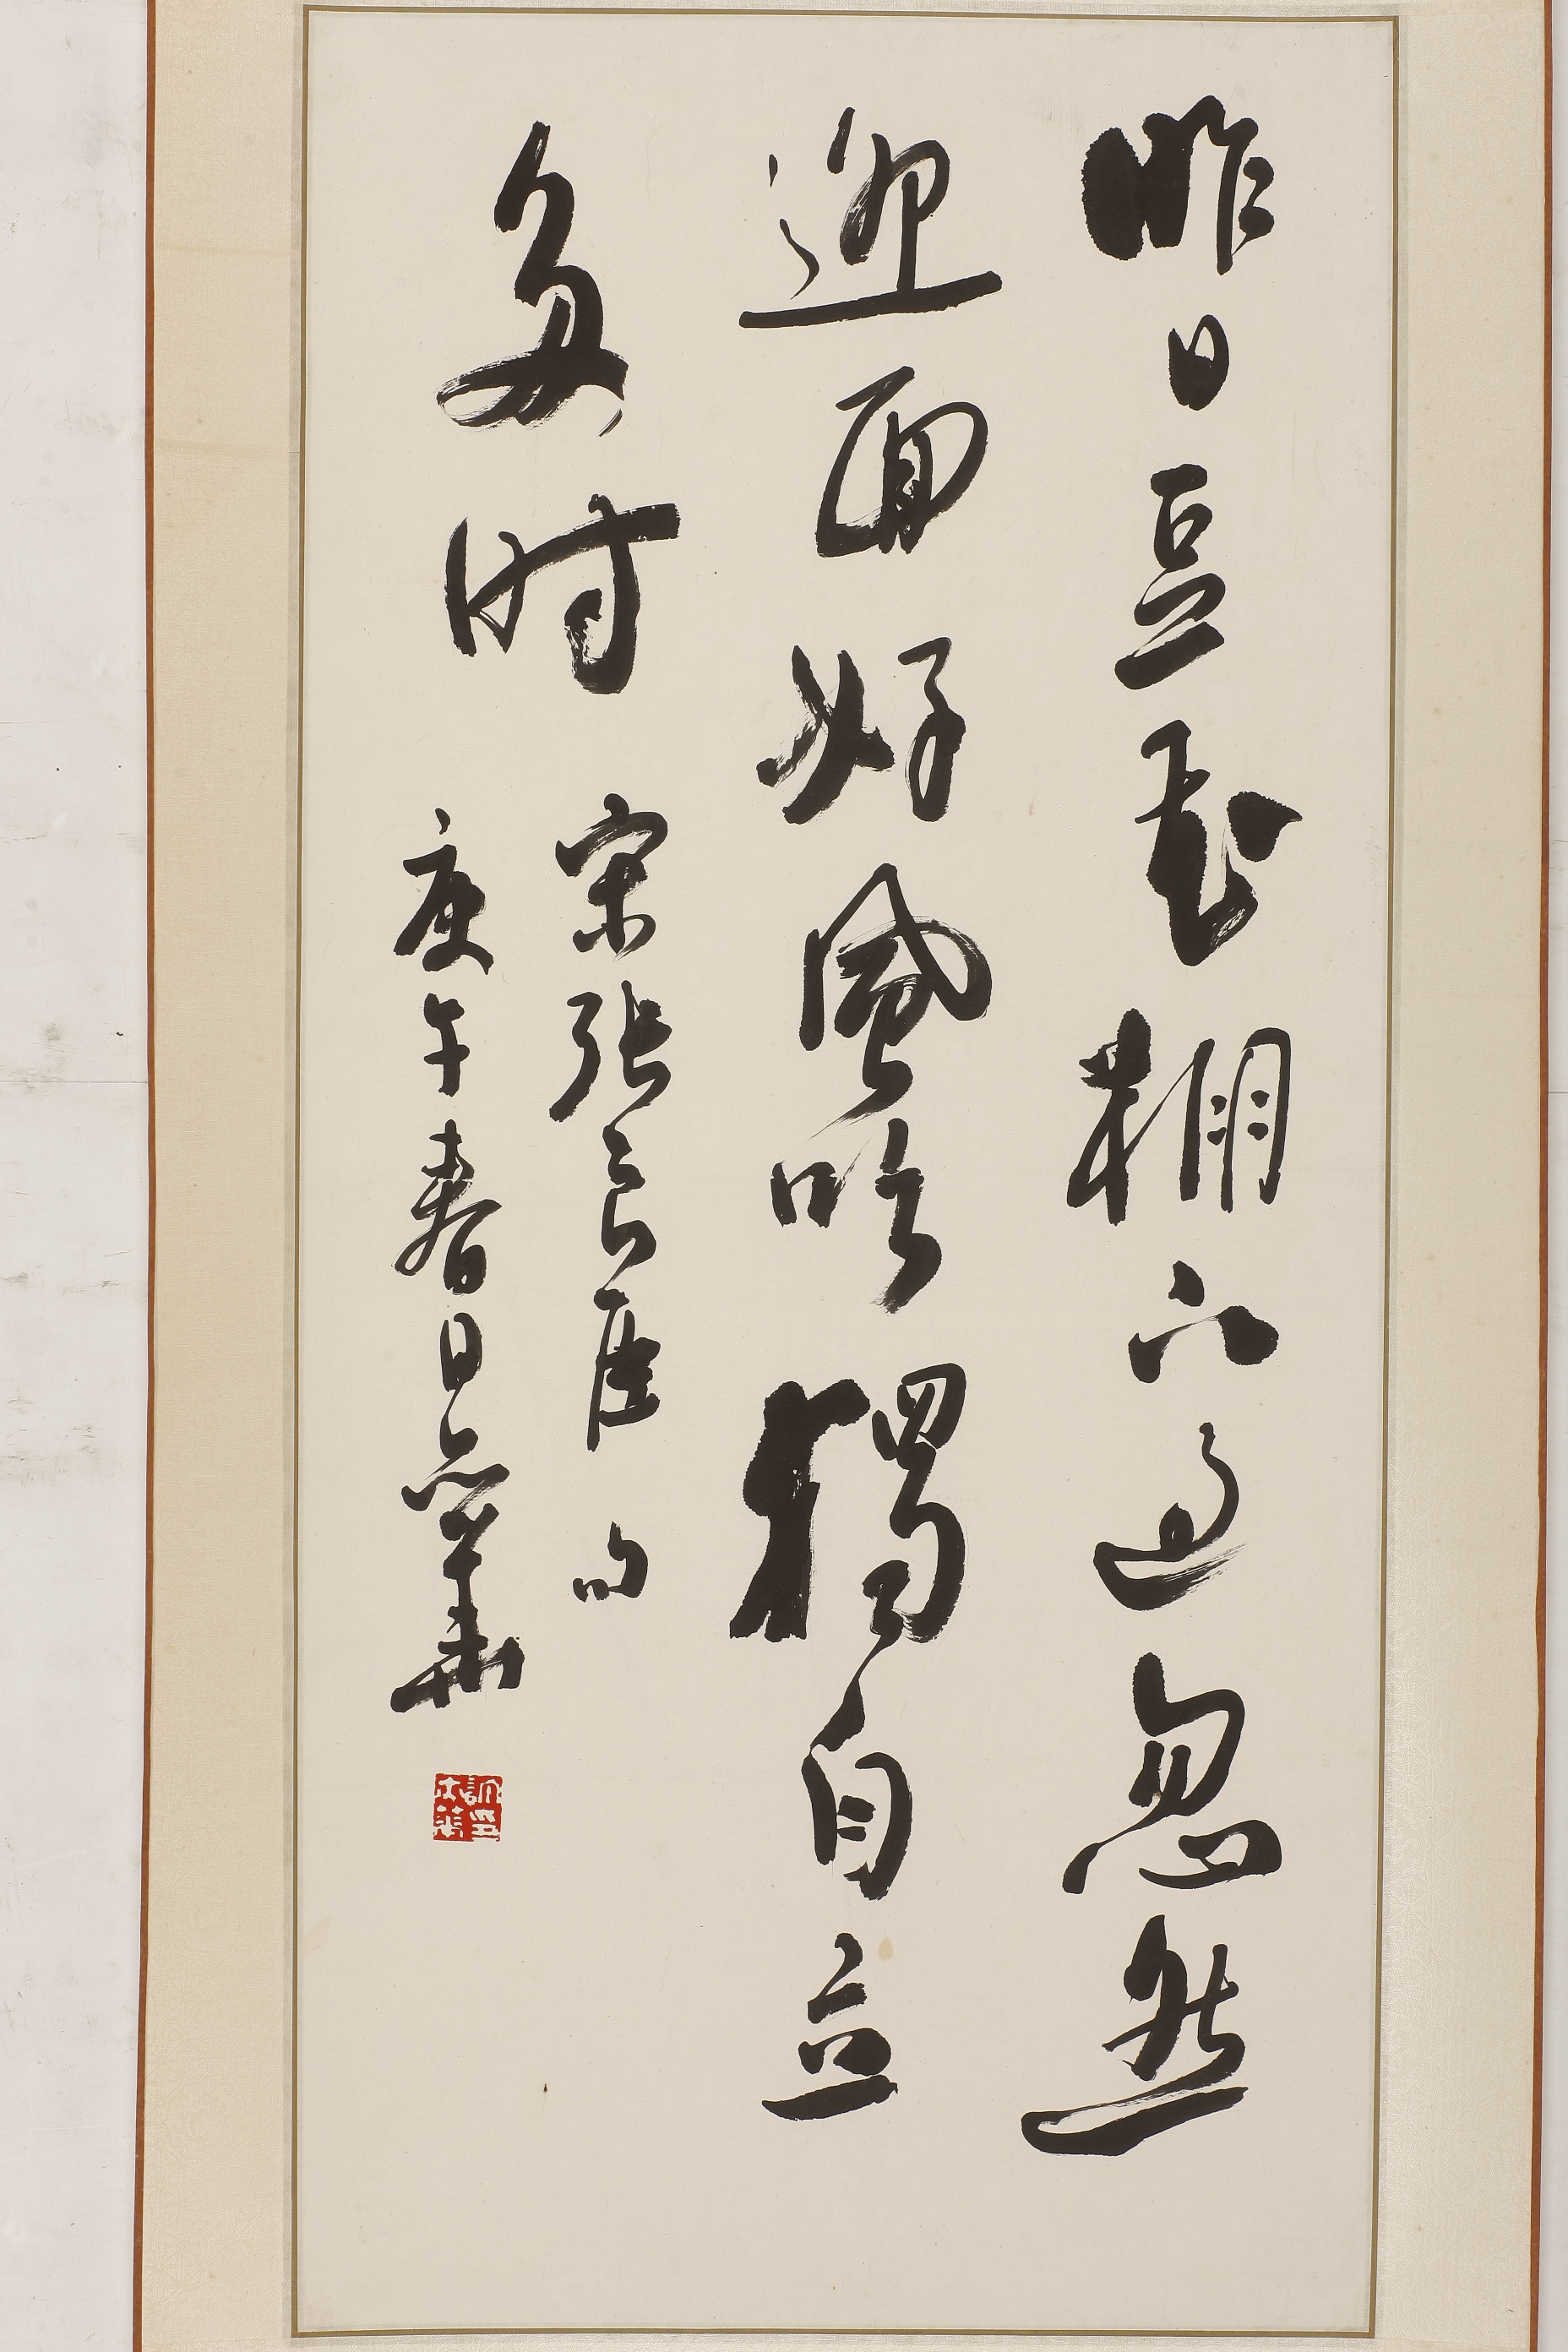 昨日豆花棚下過忽然
迎面好風吹獨自立
多时
宋張良臣句
庚午春日